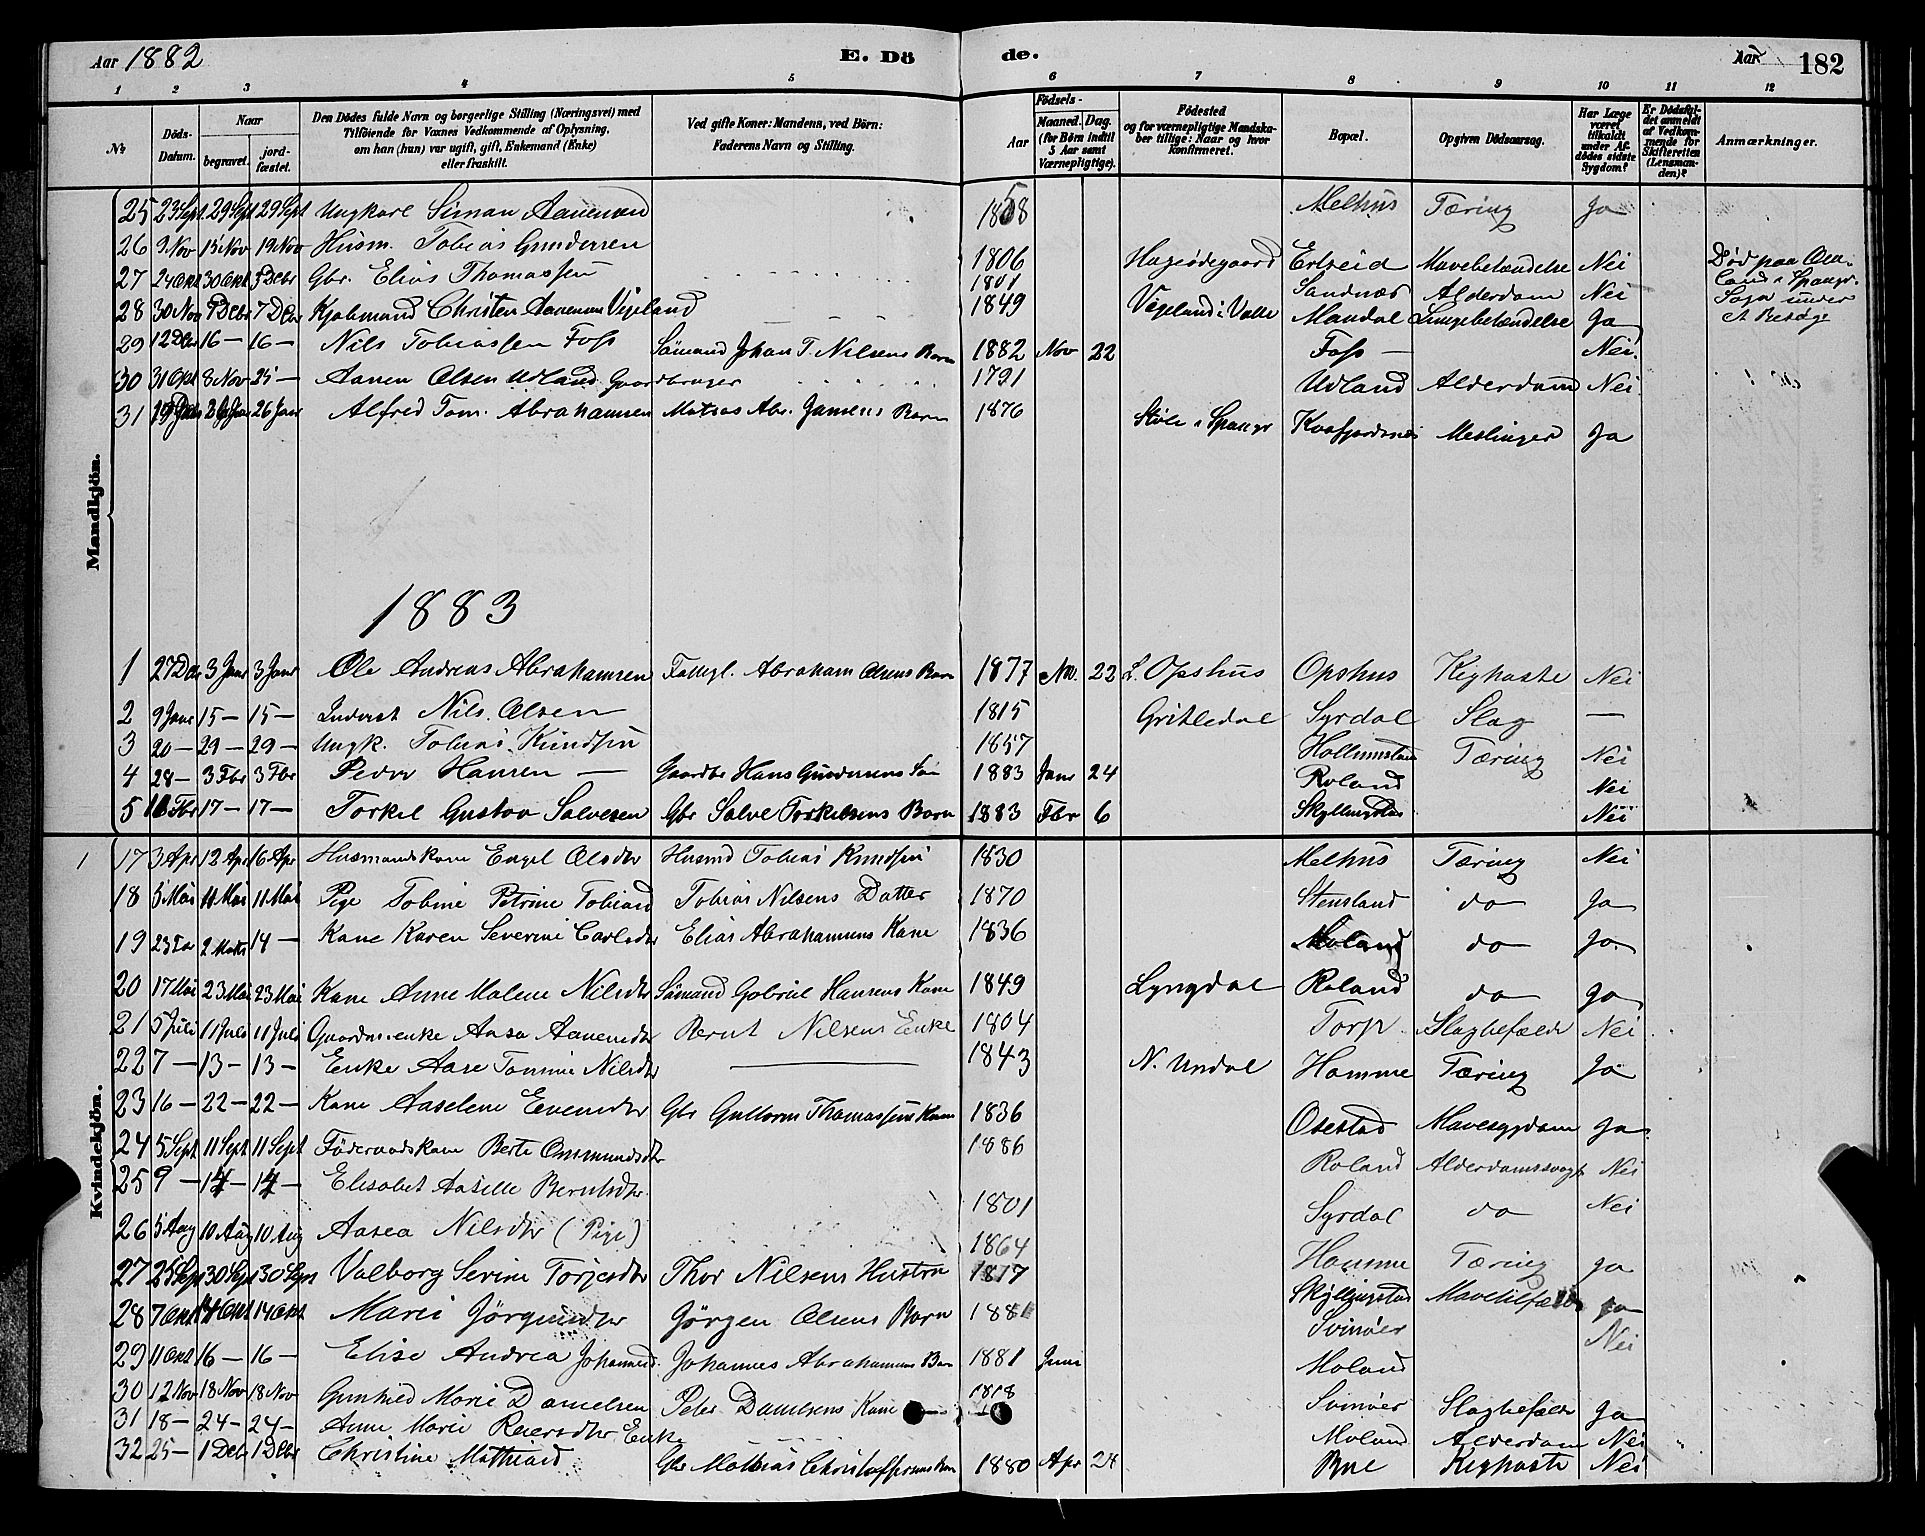 Aar 1882 E. Dö de. Aar 182
1 2 3 4 5 6 7 8 9 10 11 12
№
Döds-Datum.
Naar
begravet.
jord-fæstet.
Den Dödes fulde Navn og borgerlige Stilling (Næringsvei) med Tilföiende for Voxnes Vedkommende af Oplysning, om han (hun) var ugift, gift, Enkemand (Enke) eller fraskilt.
Ved gifte Koner: Mandens, ved Börn: Faderens Navn og Stilling.
Födsels-
Aar
Maaned.
Dag.
(for Börn indtil 5 Aar samt Værnepligtige).
Födested og for værnepligtige Mandskaber tillige: Naar og hvor konfirmeret.
Bopæl.
Opgiven Dödsaarsag.
Har Læge været tilkaldt under Afdödes sidste Sygdom?
Er Dödsfaldet anmeldt af Vedkommende for Skifteretten (Lensmanden)?
Anmærkninger.
Mandkjön.
25 23 Sept 29 Sept 29 Sept Ungkarl Siman Aanensen 1858 Melhus Tæring Ja
26 9 Nov 15 Nov 19 Nov Husm. Tobias Gundersen 1806 Hageødegaard Ertseid Mavebetændelse Nei
27 24 Okt 30 Okt 3 Decbr Gbr. Elias Thomassen 1801 Sandnæs Alderdom Nei
28 30 Nov 7 Decbr 7 Decbr Kjøbmand Christen Aanensen Vigeland 1849 Vigeland i Valle Mandal Lungebetændelse Ja
29 12 Decbr 16 — 16 — Nils Tobiassen Foss Sømand Johan T. Nilsens Barn 1882 Nov 22 Foss — Nei.
30 31 Okt 8 Nov 25 — Aanen Olsen Udland Gaardbruger 1791 Udland Alderdom Nei
31 19 Jan 26 Jan 26 Jan Alfred Tom. Abrahamsen Matros Abr. Jansens Barn 1876 Støle i Spangr Kvafjordnes Meslinger Ja
Død paa
i Spangr.
Sogn under
et Besøg
1883
1 27 Dec 3 Janr 3 Janr Ole Andreas Abrahamsen Abraham Olsens Barn 1877 22 L. Opshus Opshus Kighoste Nei
2 9 Janr 15 — 15 — Inderst Nils Olsen 1815 Gritledal Syrdal Slag —
3 20 — 29 — 29 — Ungk. Tobias Knudsen 1857 Hollumsland Tæring Nei
4 28 — 3 Fbr 3 Fbr Peder Hansen — Gaardbr Hans Gundersens Søn 1883 Janr 24 Roland Nei
5 11 Fbr 17 — 17 — Torkel Gustav Salvesen Gbr Salve Torkelsens Barn 1883 Fbr 6 Skjllingstad Nei
Kvindekjön.
17 3 Apr 12 Apr 16 Apr Husmandskone Engel Olsdtr Husmd Tobias Knudsen 1830 Melhus Tæring Nei
18 5 Mai 11 Mai 11 Mai Pige Tobine Petrine Tobiasd Tobias Nilsens Datter 1870 Stensland do Ja
19 2 Marts 14 — Kone Karen Severine Carlsdtr Elias Abrahamsens Kone 1836 Moland do Ja
20 17 Mai 23 Mai 23 Mai Kone Anne Malene Nilsdtr Sømand Gabriel Hansens Kone 1849 Lyngdal Roland do Ja
21 5 Juli 11 Juli 11 Juli Gaardm.enke Aasa Aanensdtr Bernt Nilsens Enke 1804 Torp Slagtilfælde Nei
22 7 — 13 — 13 — Enke Aase Tomine Nilsdtr — 1843 N. Undal Homme Tæring Ja
23 16 — 22 — 22 — Kone Aaselene Evensdtr Gbr Guttorm Thomassens Kone 1836 Osestad Mavesygdom Ja
24 5 Sept 11 Sept 11 Sept Föderaadskone Berte Ommundsdtr 1886 Roland Alderdomssvagh Nei
25 9 — 14 — 14 — Elisabet Aaselle Berntsdtr 1801 Syrdal do Nei
26 5 Aug 10 Aug 10 Aug Aasea Nilsdtr (Pige) 1864 Homme Tæring Ja
27 25 Sept 30 Sept 30 Sept Valborg Serine Torjesdtr Thor Nilsens Hustru 1817 Skjllingstad Mavetilfælde Ja
28 7 Okt 14 Okt 14 Okt Marie Jørgensdtr Jørgen Olsens Barn 1881 Svinøer Nei
29 11 Okt 16 — 16 — Elise Andrea Johannesd. Johannes Abrahamsens Barn 1881 Juni Moland
30 12 Nov 18 Nov 18 Nov Gunhild Marie Danielsen Peter Danielsens Kone — 1818 Svinøer Slagtilfælde Ja
31 18 — 24 — 24 — Anne Marie Reiersdtr Enke Moland Alderdom Nei
32 25 — 1 Decbr 1 Decbr Christine Mathiasd Gbr Mathias Christoffersens Barn 1880 Apr 28 Bue Kighoste Nei